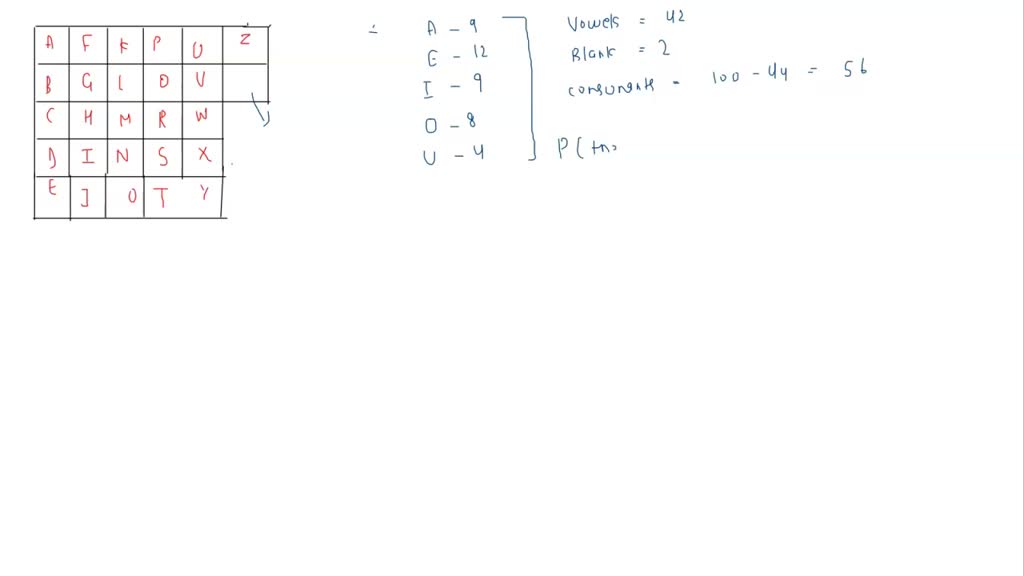 A F K P U Z
B G L O V
C H M R W
D I N S X
E J O T Y
A - 9
E - 12
I - 9
O - 8
U - 4
Vowels = 42
Blank = 2
consonants = 100 - 44 = 56
P(